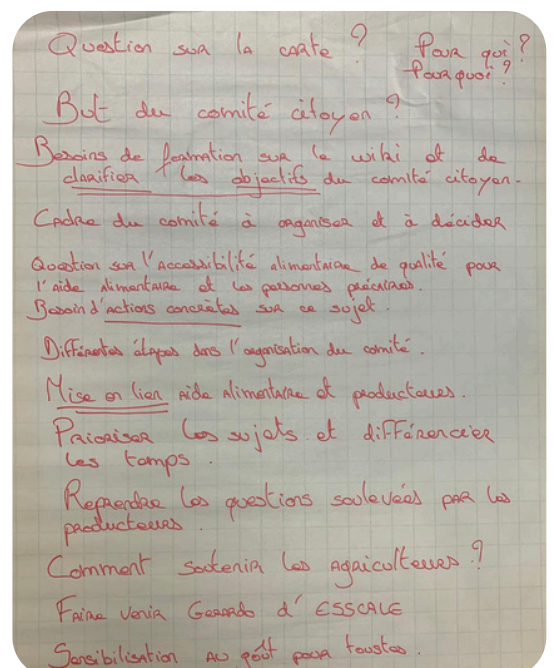 Question sur la carte ? Pour qui ?
Pourquoi ?
But du comité citoyen ?
Besoins de formation sur le wiki et de
clarifier les objectifs du comité citoyen.
Cadre du comité à organiser et à décider
Question sur l'accessibilité alimentaire de qualité pour
l'aide alimentaire et les personnes précaires.
Besoin d'actions concrètes sur ce sujet.
Différentes étapes dans l'organisation du comité.
Mise en lien aide alimentaire et producteurs.
Prioriser les sujets et différencier
les temps.
Reprendre les questions soulevées par les
producteurs.
Comment soutenir les agriculteurs ?
Faire venir Gerardo d'ESSCALE
Sensibilisation au goût pour toustes.